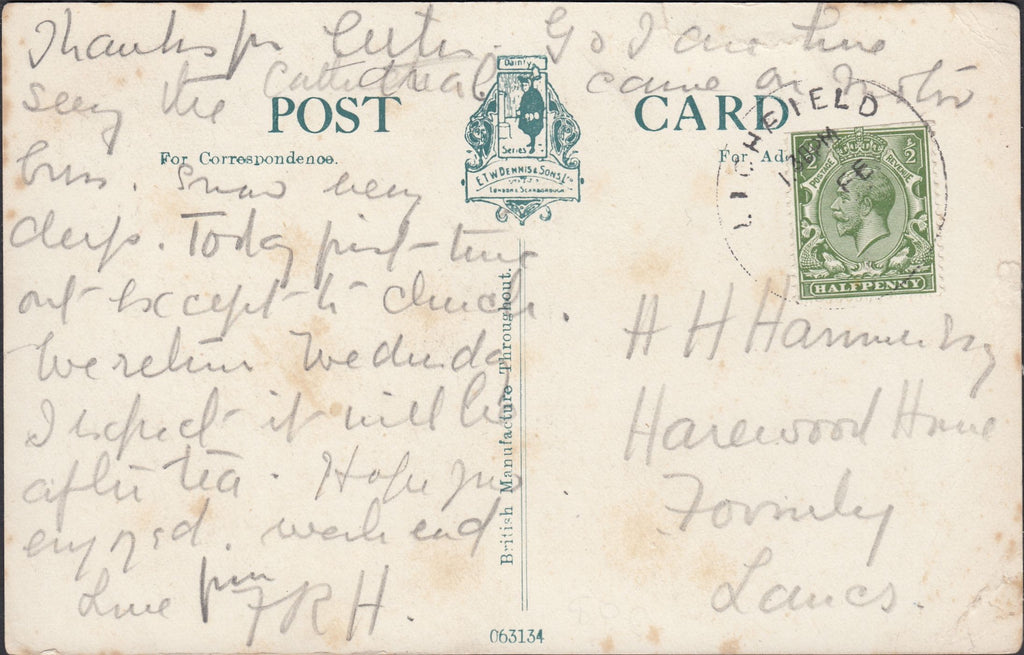 Thanks for letter. So I am here
seeing the Cathedral came on motor
POST CARD
Dainty
Series
E.T.W. DENNIS & SONS LTD
LONDON & SCARBOROUGH
For Correspondence.
For Add
LICHFIELD
FE
POSTAGE REVENUE
½
HALFPENNY
bus. Snow very
deep. Today first time
out except to church.
We return Wednesday
I expect it will be
after tea. Hope you
enjoyed week end
Love from
F R H.
British Manufacture Throughout.
H H Hammersley
Harewood House
Formby
Lancs.
063134